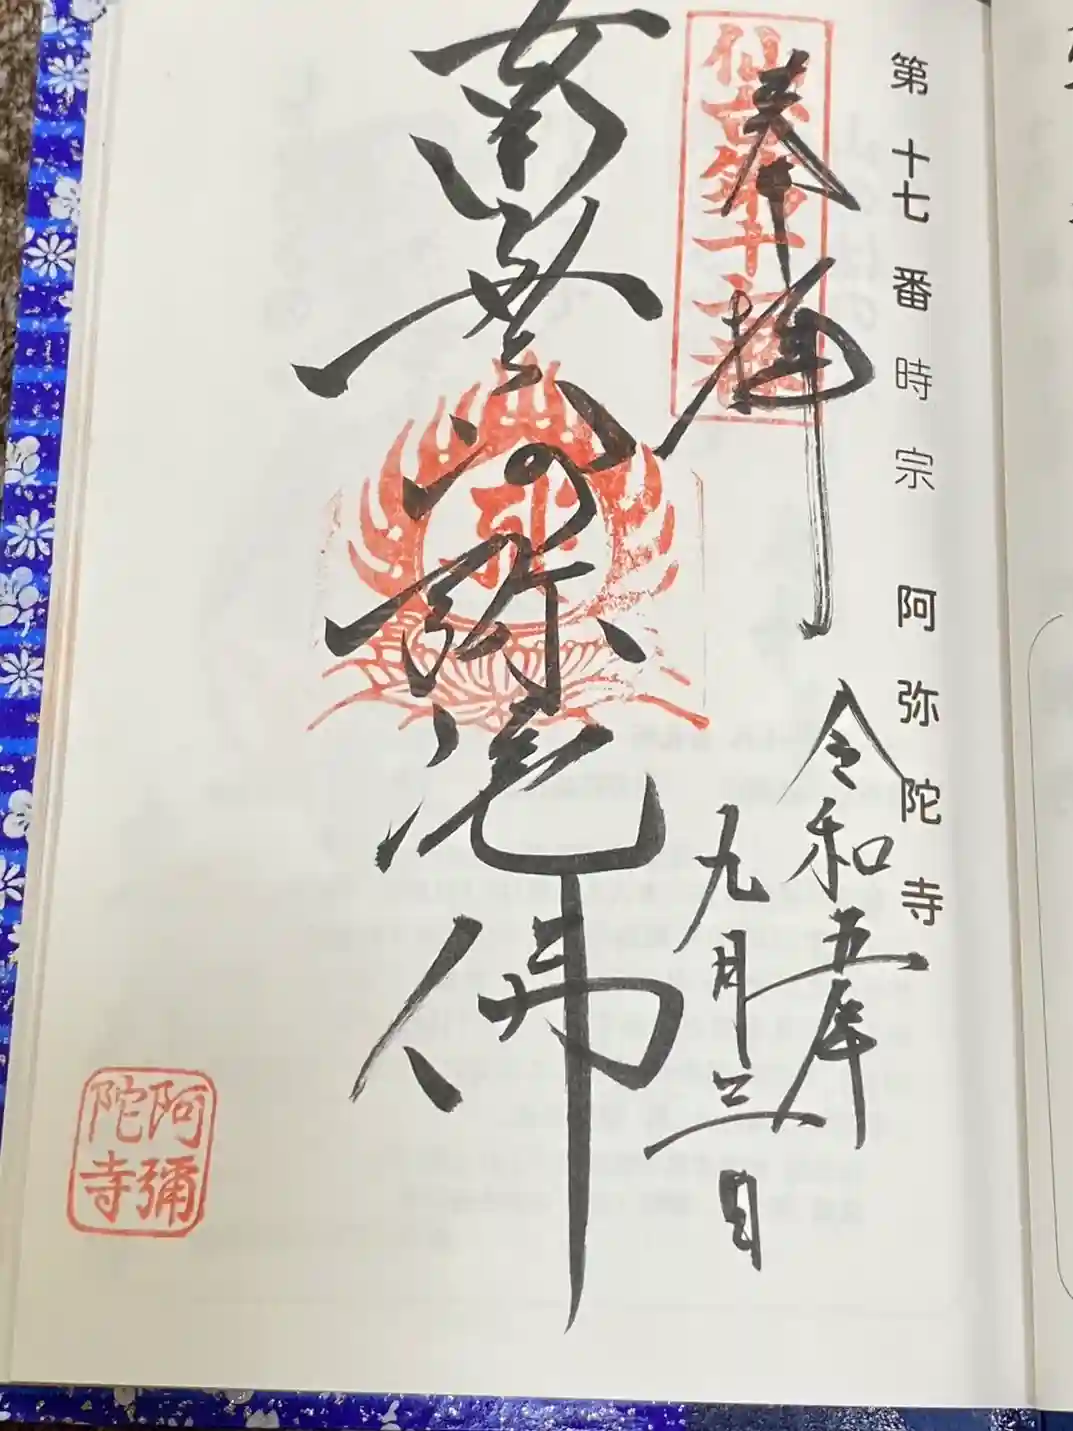 第十七番 時宗 阿弥陀寺
奉拝
仙古第十七番
令和五年
九月三日
南無阿弥陀佛
阿彌
陀寺